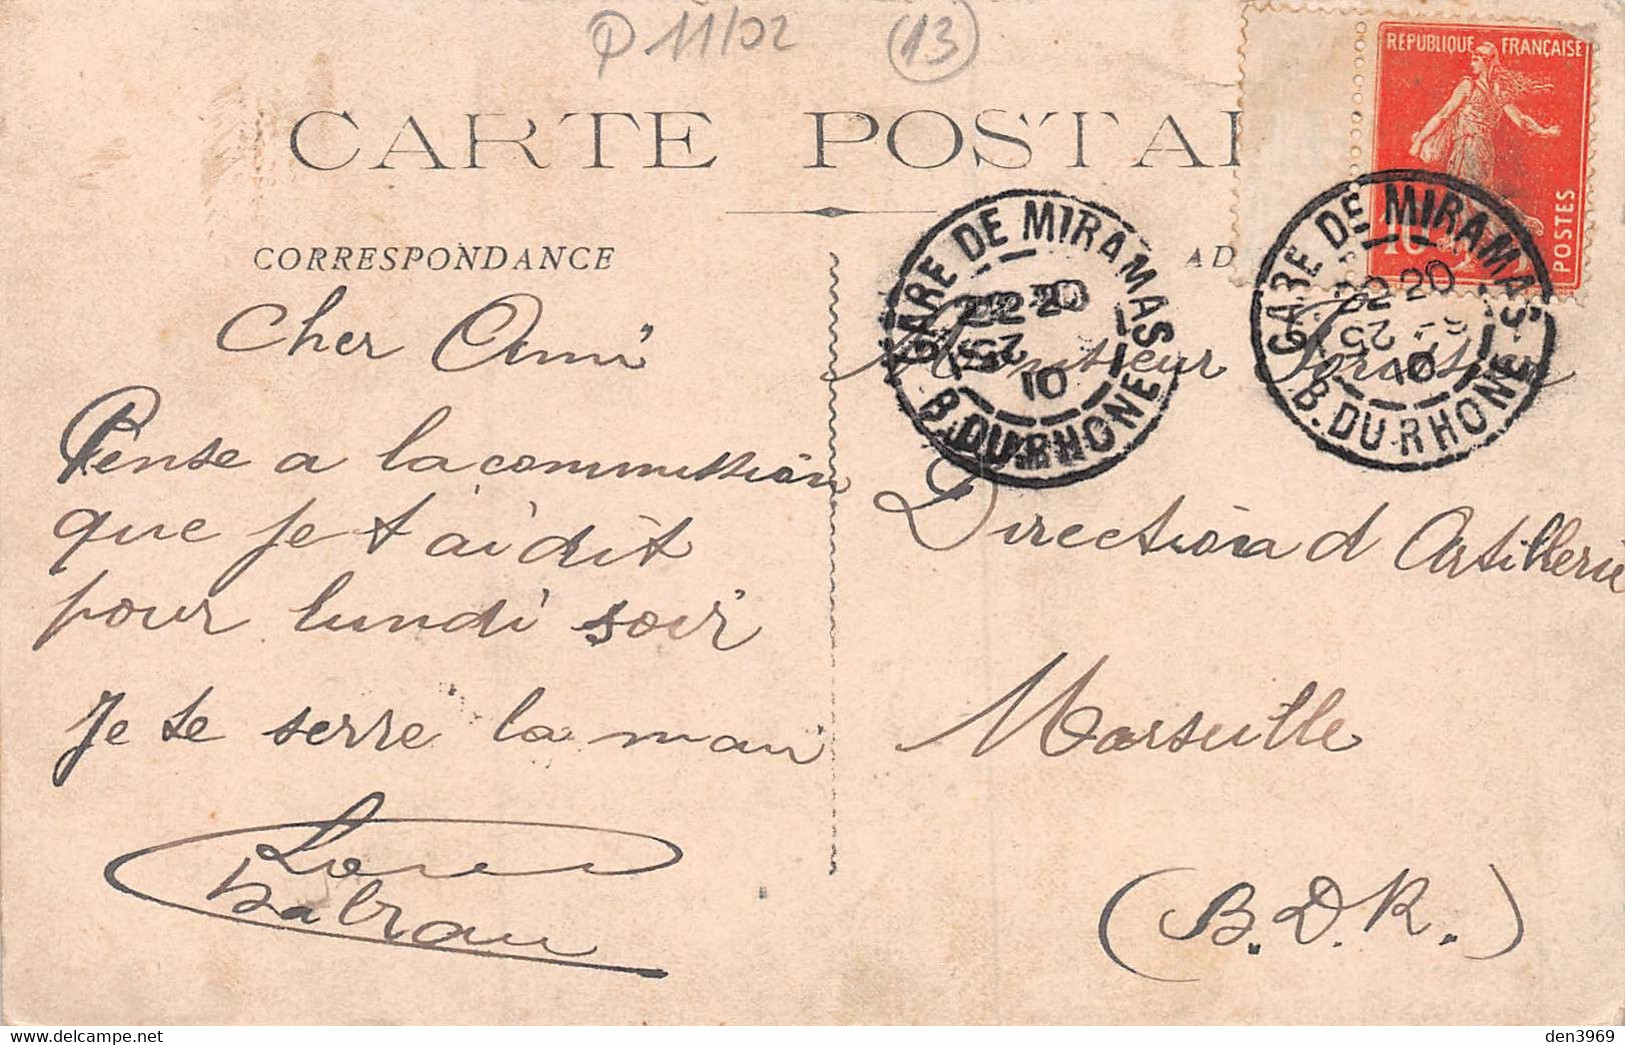 P 11/02 (13)
CARTE POSTAL
REPUBLIQUE FRANÇAISE
POSTES
10
CORRESPONDANCE
AD
GARE DE MIRAMAS
22 20
25
10
B. DU RHONE
GARE DE MIRAMAS
22 20
25
10
B. DU RHONE
Cher Ami
Pense a la commission
que je t'ai dit
pour lundi soir
Je te serre la main
Monsieur
Direction d Artillerie
Marseille
(B.D.R.)
den3969